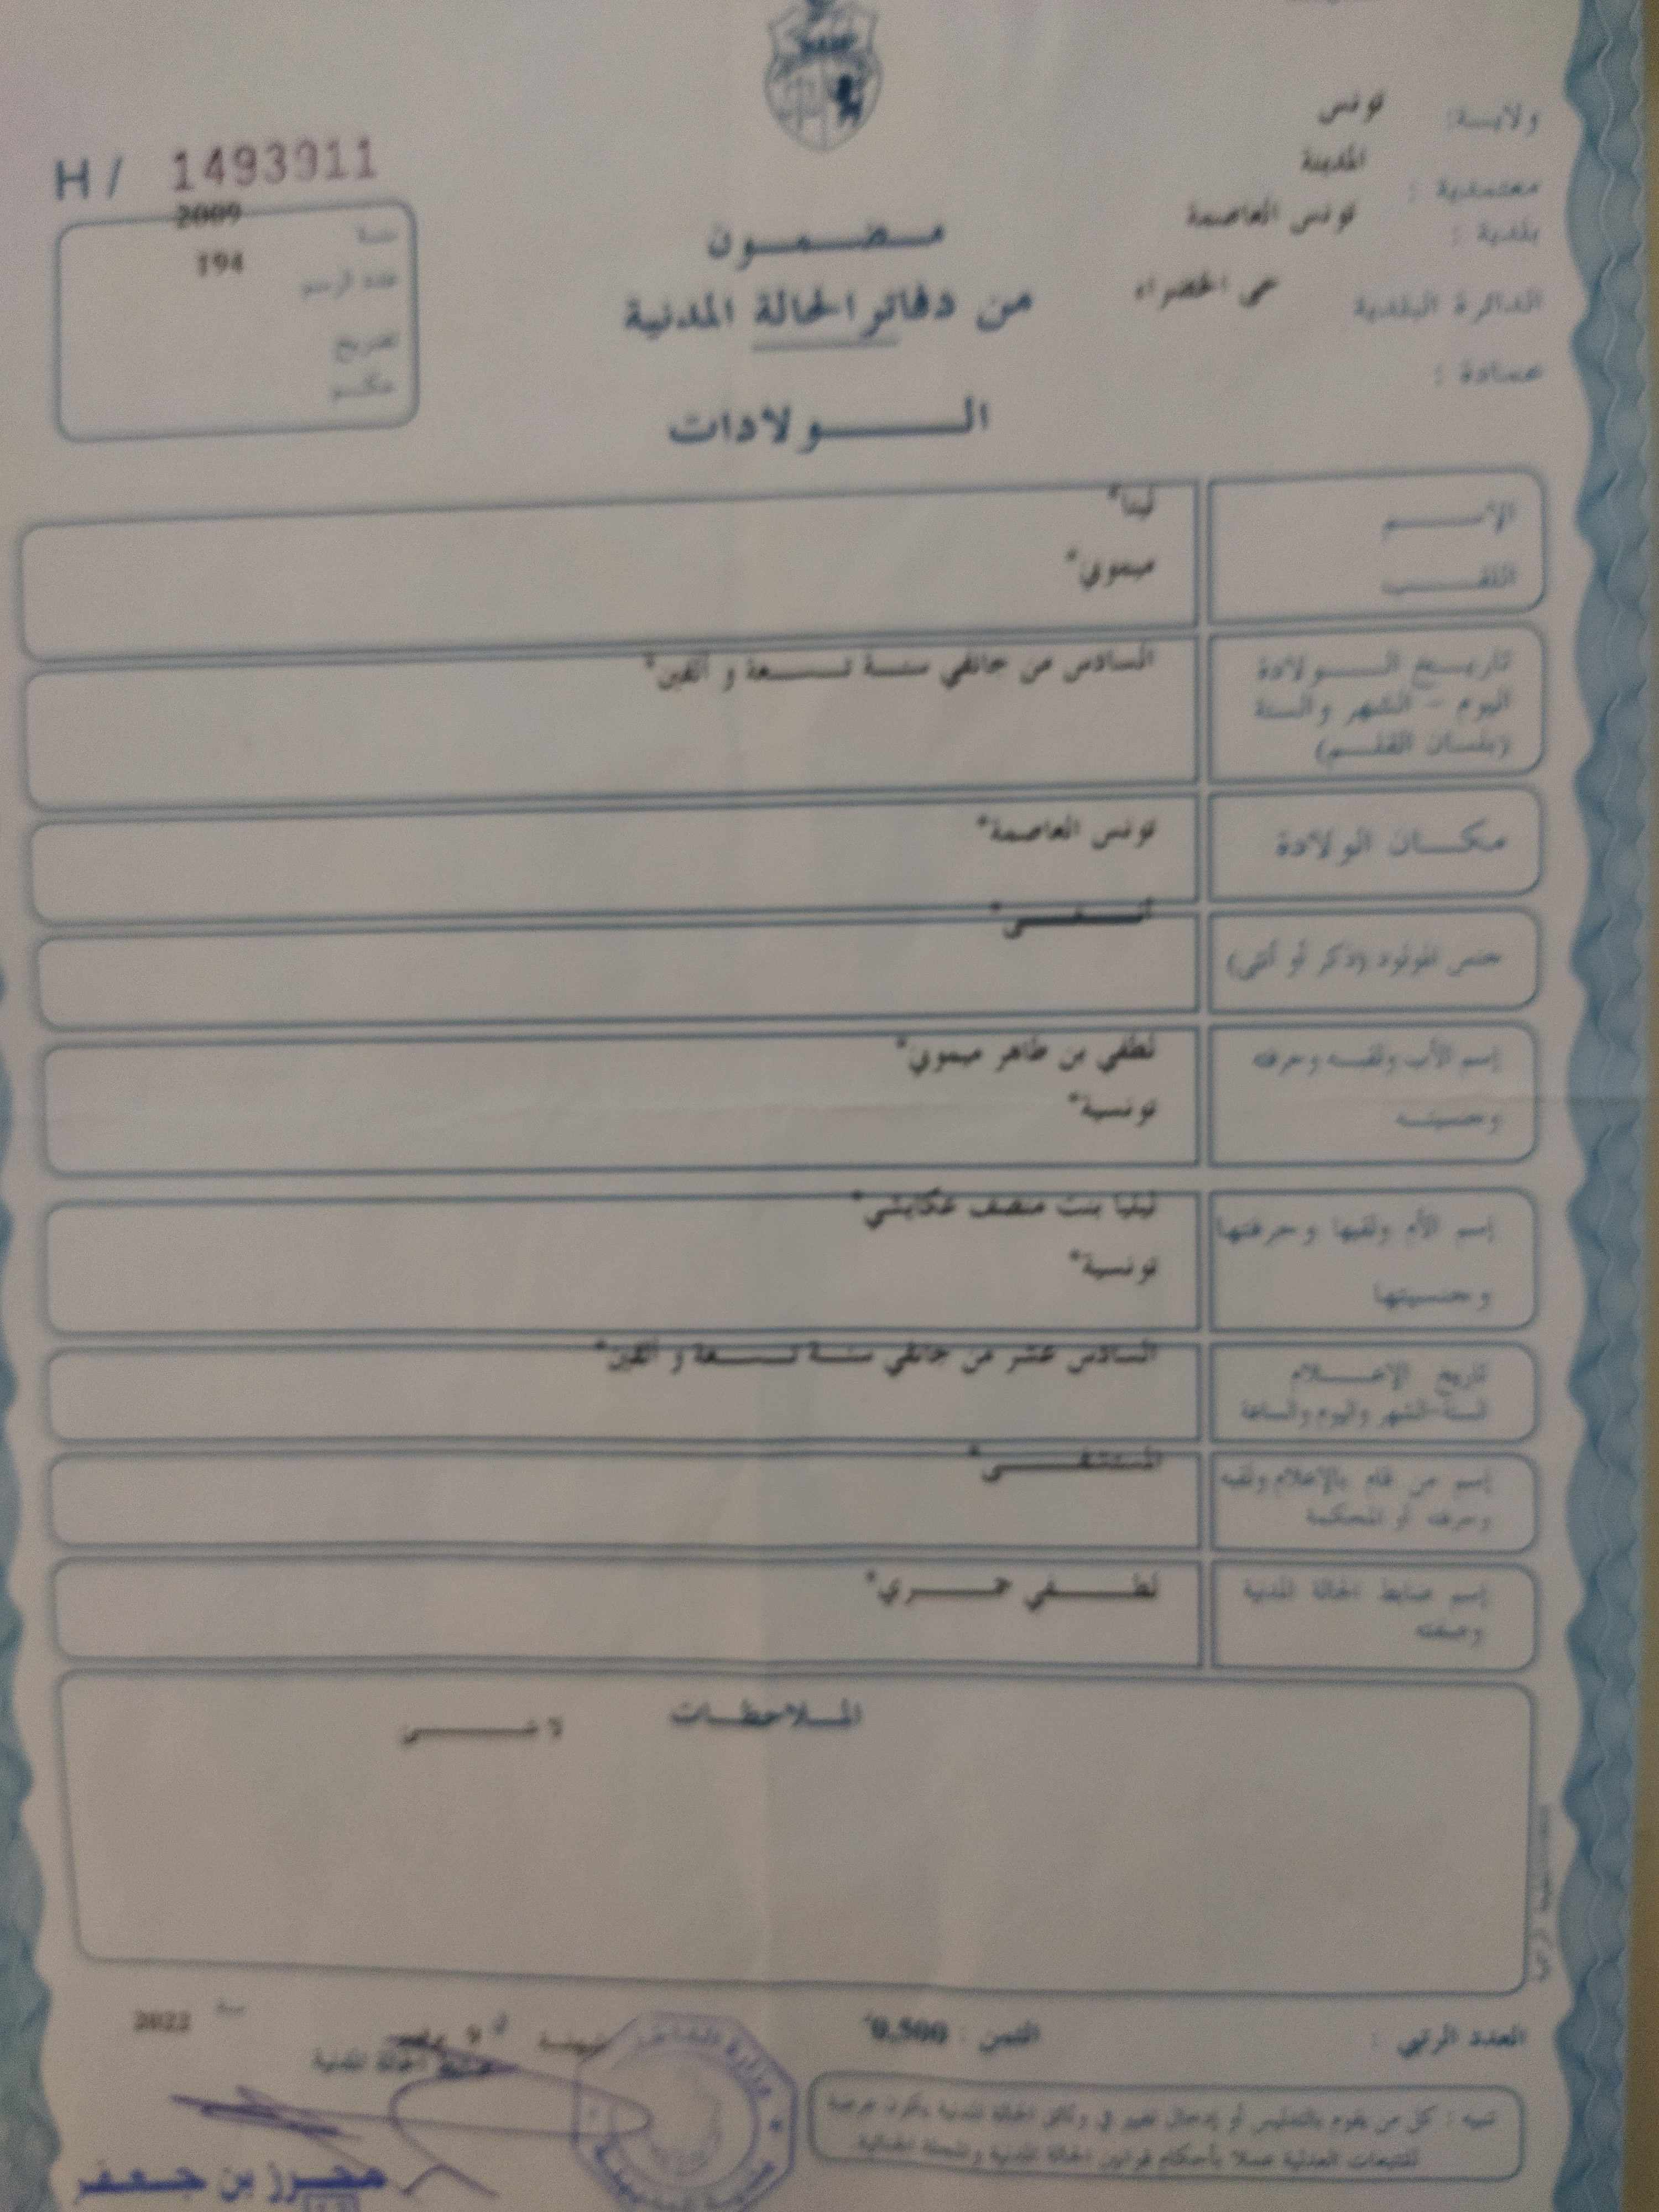 ولايـة: تونس
معتمدية : المدينة
بلدية : تونس العاصمة
الدائرة البلدية حى الخضراء
عمادة :
H / 1493911
سنة 2009
عدد الرسم 194
تصريح
حكم
مضمون
من دفاتر الحالة المدنية
الولادات
الإسم لينا*
اللقب ميموني*
تاريخ الولادة السادس من جانفي سنة تسعة و ألفين*
اليوم - الشهر والسنة
(بلسان القلم)
مكان الولادة تونس العاصمة*
جنس المولود (ذكر أو أنثى) أنثى*
إسم الأب ولقبه وحرفته لطفي بن طاهر ميموني*
وجنسيته تونسية*
إسم الأم ولقبها وحرفتها بنت منصف
وجنسيتها تونسية*
تاريخ الإعلام السادس عشر من جانفي سنة تسعة و ألفين*
السنة-الشهر واليوم والساعة
إسم من قام بالإعلام ولقبه المستشفى*
وحرفته أو المحكمة
إسم ضابط الحالة المدنية لطفي
وصفته
الملاحظات
لا شىء
العدد الرتبي :
الثمن : 0,500
في 9 سنة 2022
ضابط الحالة المدنية
تنبيه : كل من يقوم بالتدليس أو إدخال تغيير في وثائق الحالة المدنية يكون عرضة
للتتبعات العدلية عملا بأحكام قوانين الحالة المدنية والمجلة الجنائية
محرز بن جعفر